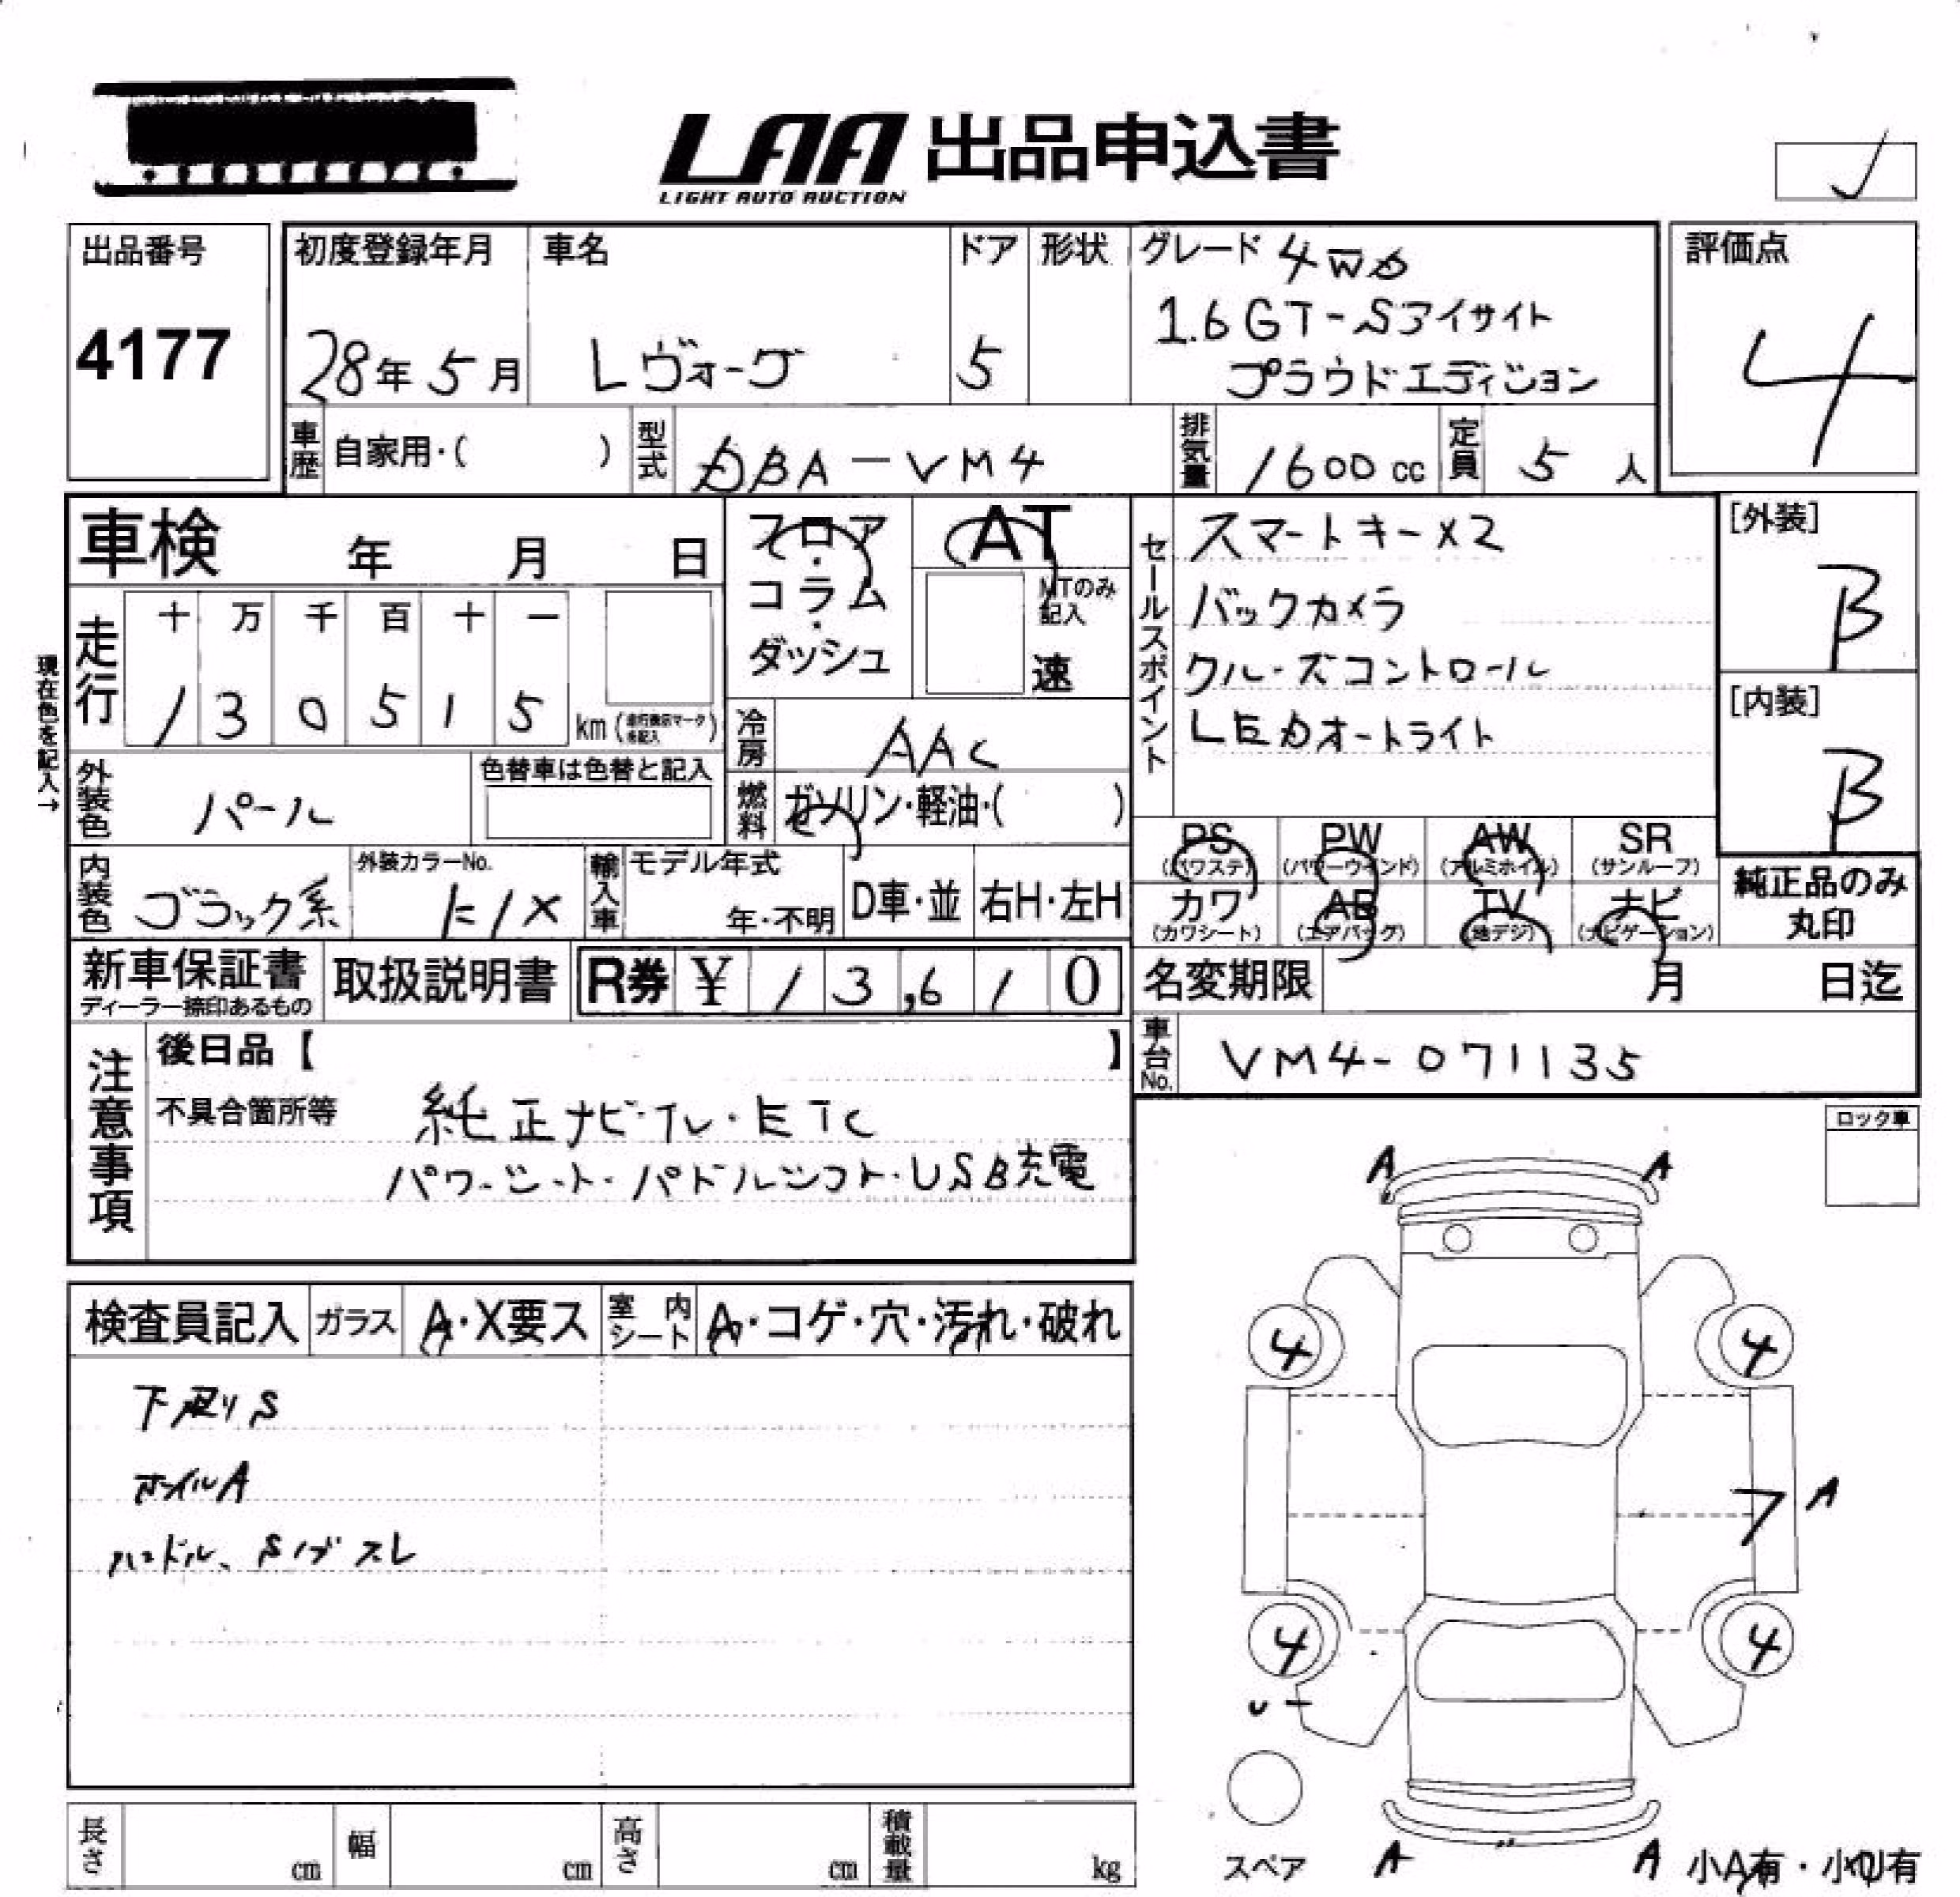 LAA 出品申込書
LIGHT AUTO AUCTION
出品番号
4177
初度登録年月
28年 5月
車名
レヴォーグ
ドア
5
形状
グレード 4WD
1.6GT-Sアイサイト
プラウドエディション
評価点
4
車歴 自家用・( )
型式 DBA-VM4
排気量 1600 cc
定員 5 人
車検 年 月 日
現在色を記入→
走行
十 万 千 百 十 一
1 3 0 5 1 5 km (走行表示マークを記入)
外装色 パール
色替車は色替と記入
内装色 ブラック系
外装カラーNo. K1X
輸入車
モデル年式
年・不明
D車・並
右H・左H
フロア・
コラム・
ダッシュ
AT
MTのみ記入
速
冷房 AAC
燃料 ガソリン・軽油・( )
セールスポイント
スマートキーX2
バックカメラ
クルーズコントロール
LEDオートライト
[外装]
B
[内装]
B
PS (パワステ)
PW (パワーウィンド)
AW (アルミホイル)
SR (サンルーフ)
カワ (カワシート)
AB (エアバッグ)
TV (地デジ)
ナビ (ナビゲーション)
純正品のみ
丸印
新車保証書
ディーラー捺印あるもの
取扱説明書
R券 ¥ 13,610
名変期限 月 日迄
車台No. VM4-071135
注意事項
後日品【 】
不具合箇所等
純正ナビ・TV・ETC
パワーシート・パドルシフト・USB充電
ロック車
検査員記入
ガラス A・X要ス
室内シート A・コゲ・穴・汚れ・破れ
下廻りS
ホイルA
ハンドル、Sノブスレ
A A
4 4
A
4 4
スペア
A A
小A有・小U有
長さ cm
幅 cm
高さ cm
積載量 kg